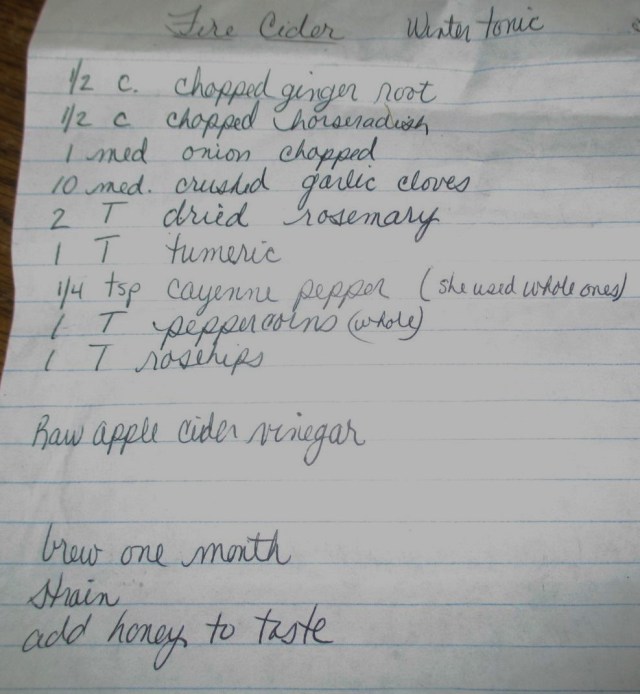 Fire Cider Winter tonic
1/2 c. chopped ginger root
1/2 c chopped horseradish
1 med onion chopped
10 med. crushed garlic cloves
2 T dried rosemary
1 T tumeric
1/4 tsp cayenne pepper (she used whole ones)
1 T peppercorns (whole)
1 T rosehips
Raw apple cider vinegar
brew one month
strain
add honey to taste